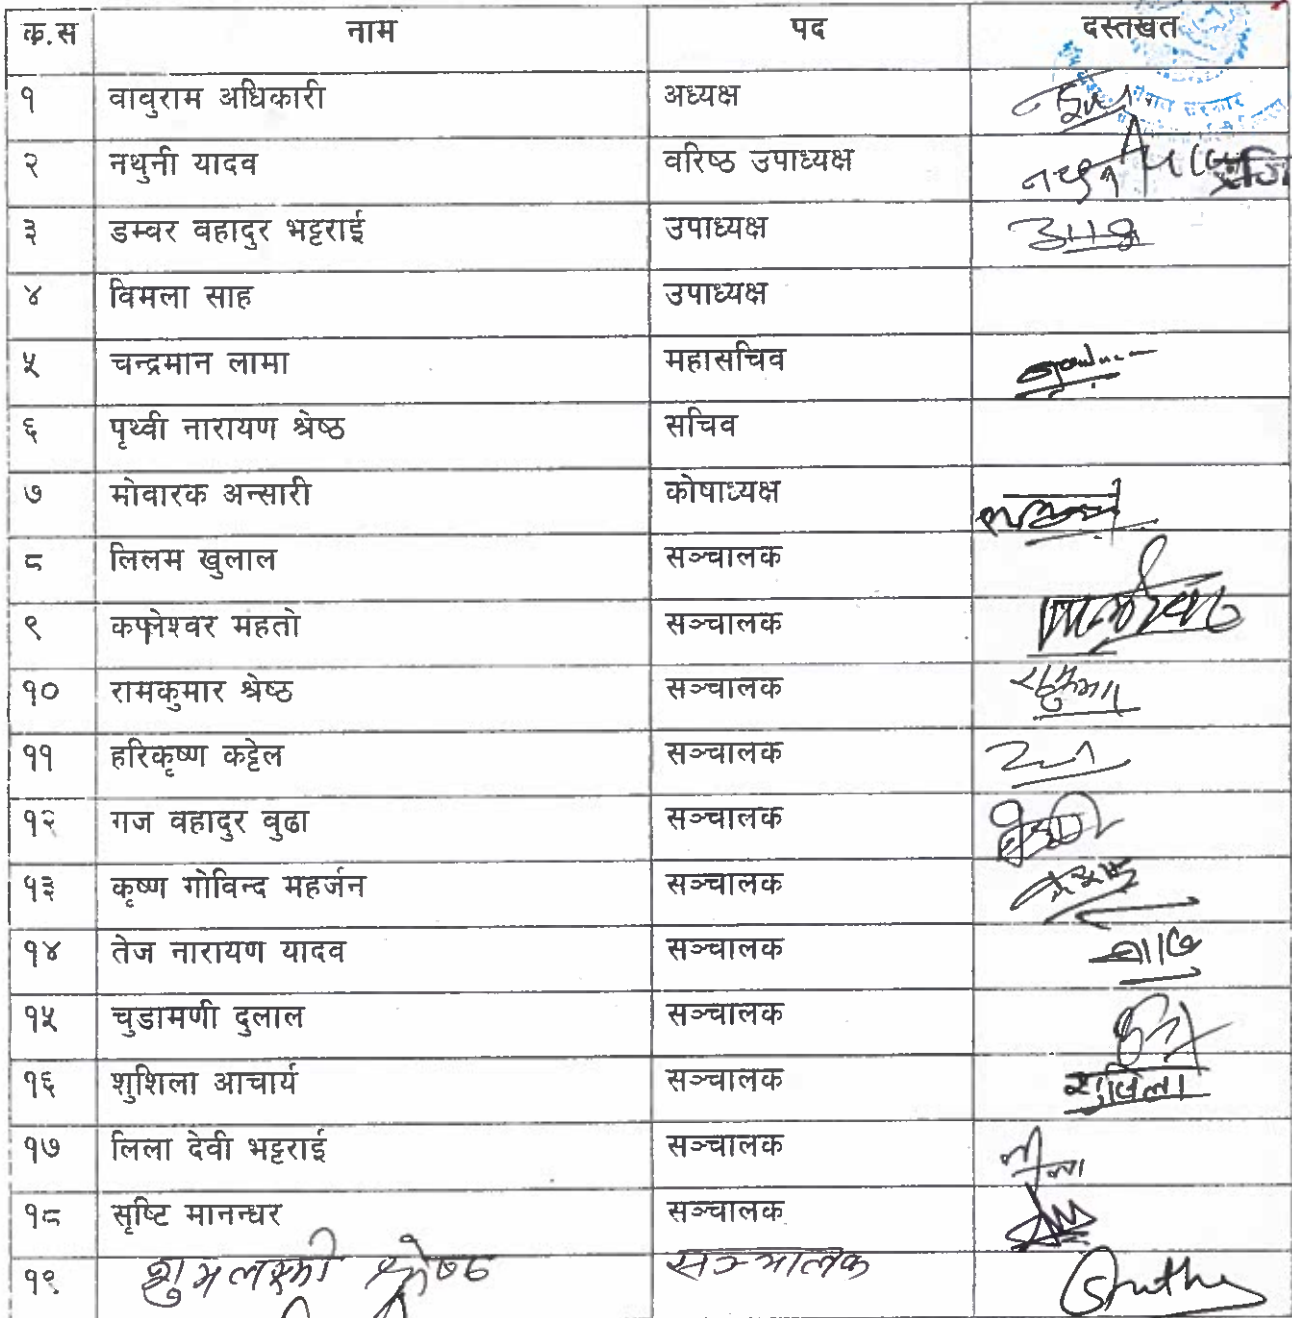 क्र.स नाम पद दस्तखत
१ वावुराम अधिकारी अध्यक्ष
२ नथुनी यादव वरिष्ठ उपाध्यक्ष
३ डम्वर वहादुर भट्टराई उपाध्यक्ष
४ विमला साह उपाध्यक्ष
५ चन्द्रमान लामा महासचिव
६ पृथ्वी नारायण श्रेष्ठ सचिव
७ मोवारक अन्सारी कोषाध्यक्ष
८ लिलम खुलाल सञ्चालक
९ कप्लेश्वर महतो सञ्चालक
१० रामकुमार श्रेष्ठ सञ्चालक
११ हरिकृष्ण कट्टेल सञ्चालक
१२ गज वहादुर वुढा सञ्चालक
१३ कृष्ण गोविन्द महर्जन सञ्चालक
१४ तेज नारायण यादव सञ्चालक
१५ चुडामणी दुलाल सञ्चालक
१६ शुशिला आचार्य सञ्चालक
१७ लिला देवी भट्टराई सञ्चालक
१८ सृष्टि मानन्धर सञ्चालक
१९ शुभलक्ष्मी श्रेष्ठ सञ्चालक